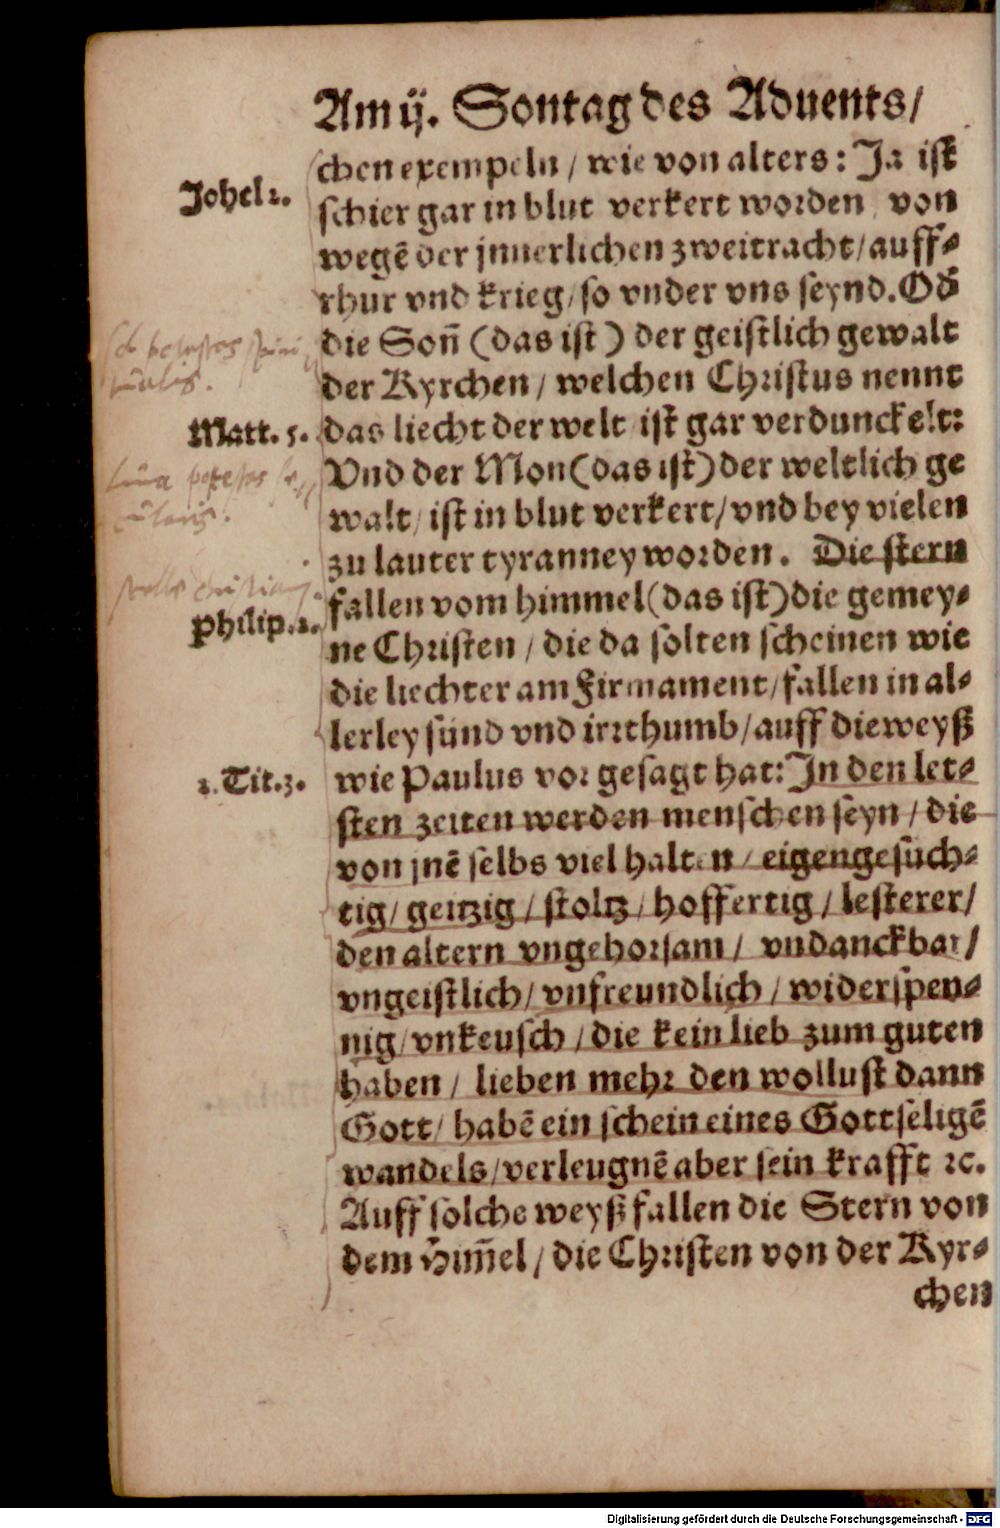 Am ij. Sontag des Aduents/
chen exempeln / wie von alters: Ja ist
Johel 2.
schier gar in blut verkert worden von
wegē der jnnerlichen zweitracht / auff⸗
rhur vnd krieg / so vnder vns seynd. Od̄
die Soñ (das ist) der geistlich gewalt
der Kyrchen / welchen Christus nennt
Matt. 5.
das liecht der welt ist gar verdunckelt:
luna potestas
Vnd der Mon (das ist) der weltlich ge
walt / ist in blut verkert / vnd bey vielen
zu lauter tyranney worden. Die stern
fallen vom himmel (das ist) die gemey⸗
Philip. 2.
ne Christen / die da solten scheinen wie
die liechter am Firmament / fallen in al⸗
lerley sünd vnd irrthumb / auff die weyß
2. Tit. 3.
wie Paulus vor gesagt hat: In den let⸗
sten zeiten werden menschen seyn / die
von jnē selbs viel halten / eigengesüch⸗
tig / geitzig / stoltz / hoffertig / lesterer /
den altern vngehorsam / vndanckbar /
vngeistlich / vnfreundlich / widerspen⸗
nig / vnkeusch / die kein lieb zum guten
haben / lieben mehr den wollust dann
Gott / habē ein schein eines Gottseligē
wandels / verleugnē aber sein krafft ꝛc.
Auff solche weyß fallen die Stern von
dem Him̄el / die Christen von der Kyr⸗
chen
Digitalisierung gefördert durch die Deutsche Forschungsgemeinschaft - DFG